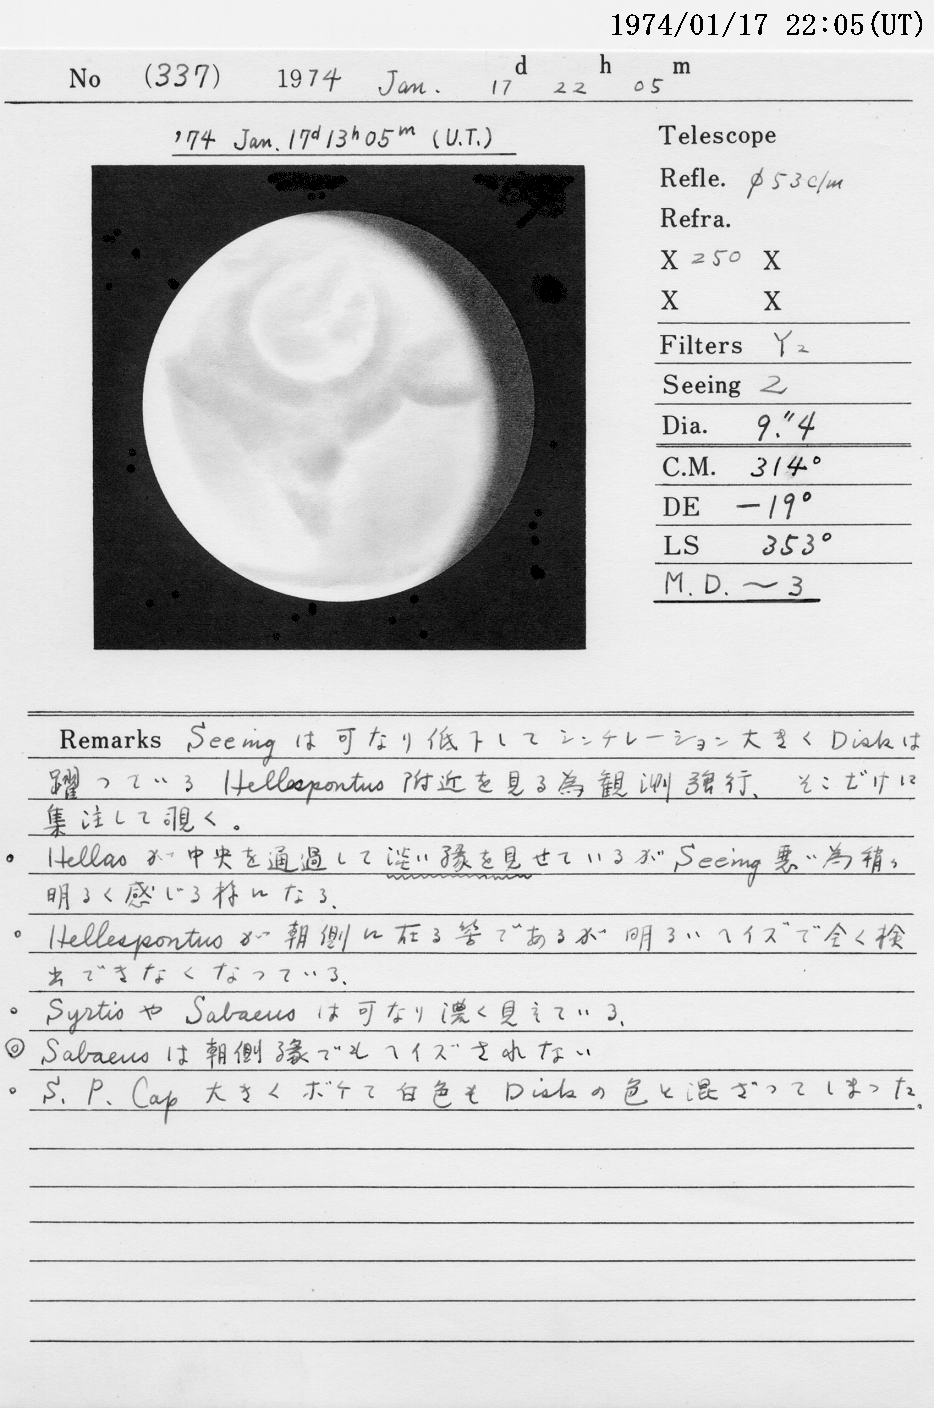 1974/01/17 22:05(UT)
No (337) 1974 Jan. 17d 22h 05m
'74 Jan. 17d 13h 05m (U.T.)
Telescope
Refle. φ53c/m
Refra.
X 250 X
X X
Filters Y2
Seeing 2
Dia. 9."4
C.M. 314°
DE -19°
LS 353°
M.D. ~3
Remarks Seeingは可なり低下してシンチレーション大きくDiskは
躍っている Hellespontus附近を見る為観測強行、そこだけに
集注して覗く。
• Hellasが中央を通過して淡い縁を見せているがSeeing悪い為稍々
明るく感じる様になる、
• Hellespontusが朝側に在る筈であるが明るいヘイズで全く検
出できなくなっている、
• SyrtisやSabaeusは可なり濃く見えている、
◎ Sabaeusは朝側縁でもヘイズされない
• S. P. Cap 大きくボケて白色もDiskの色と混ざってしまった。